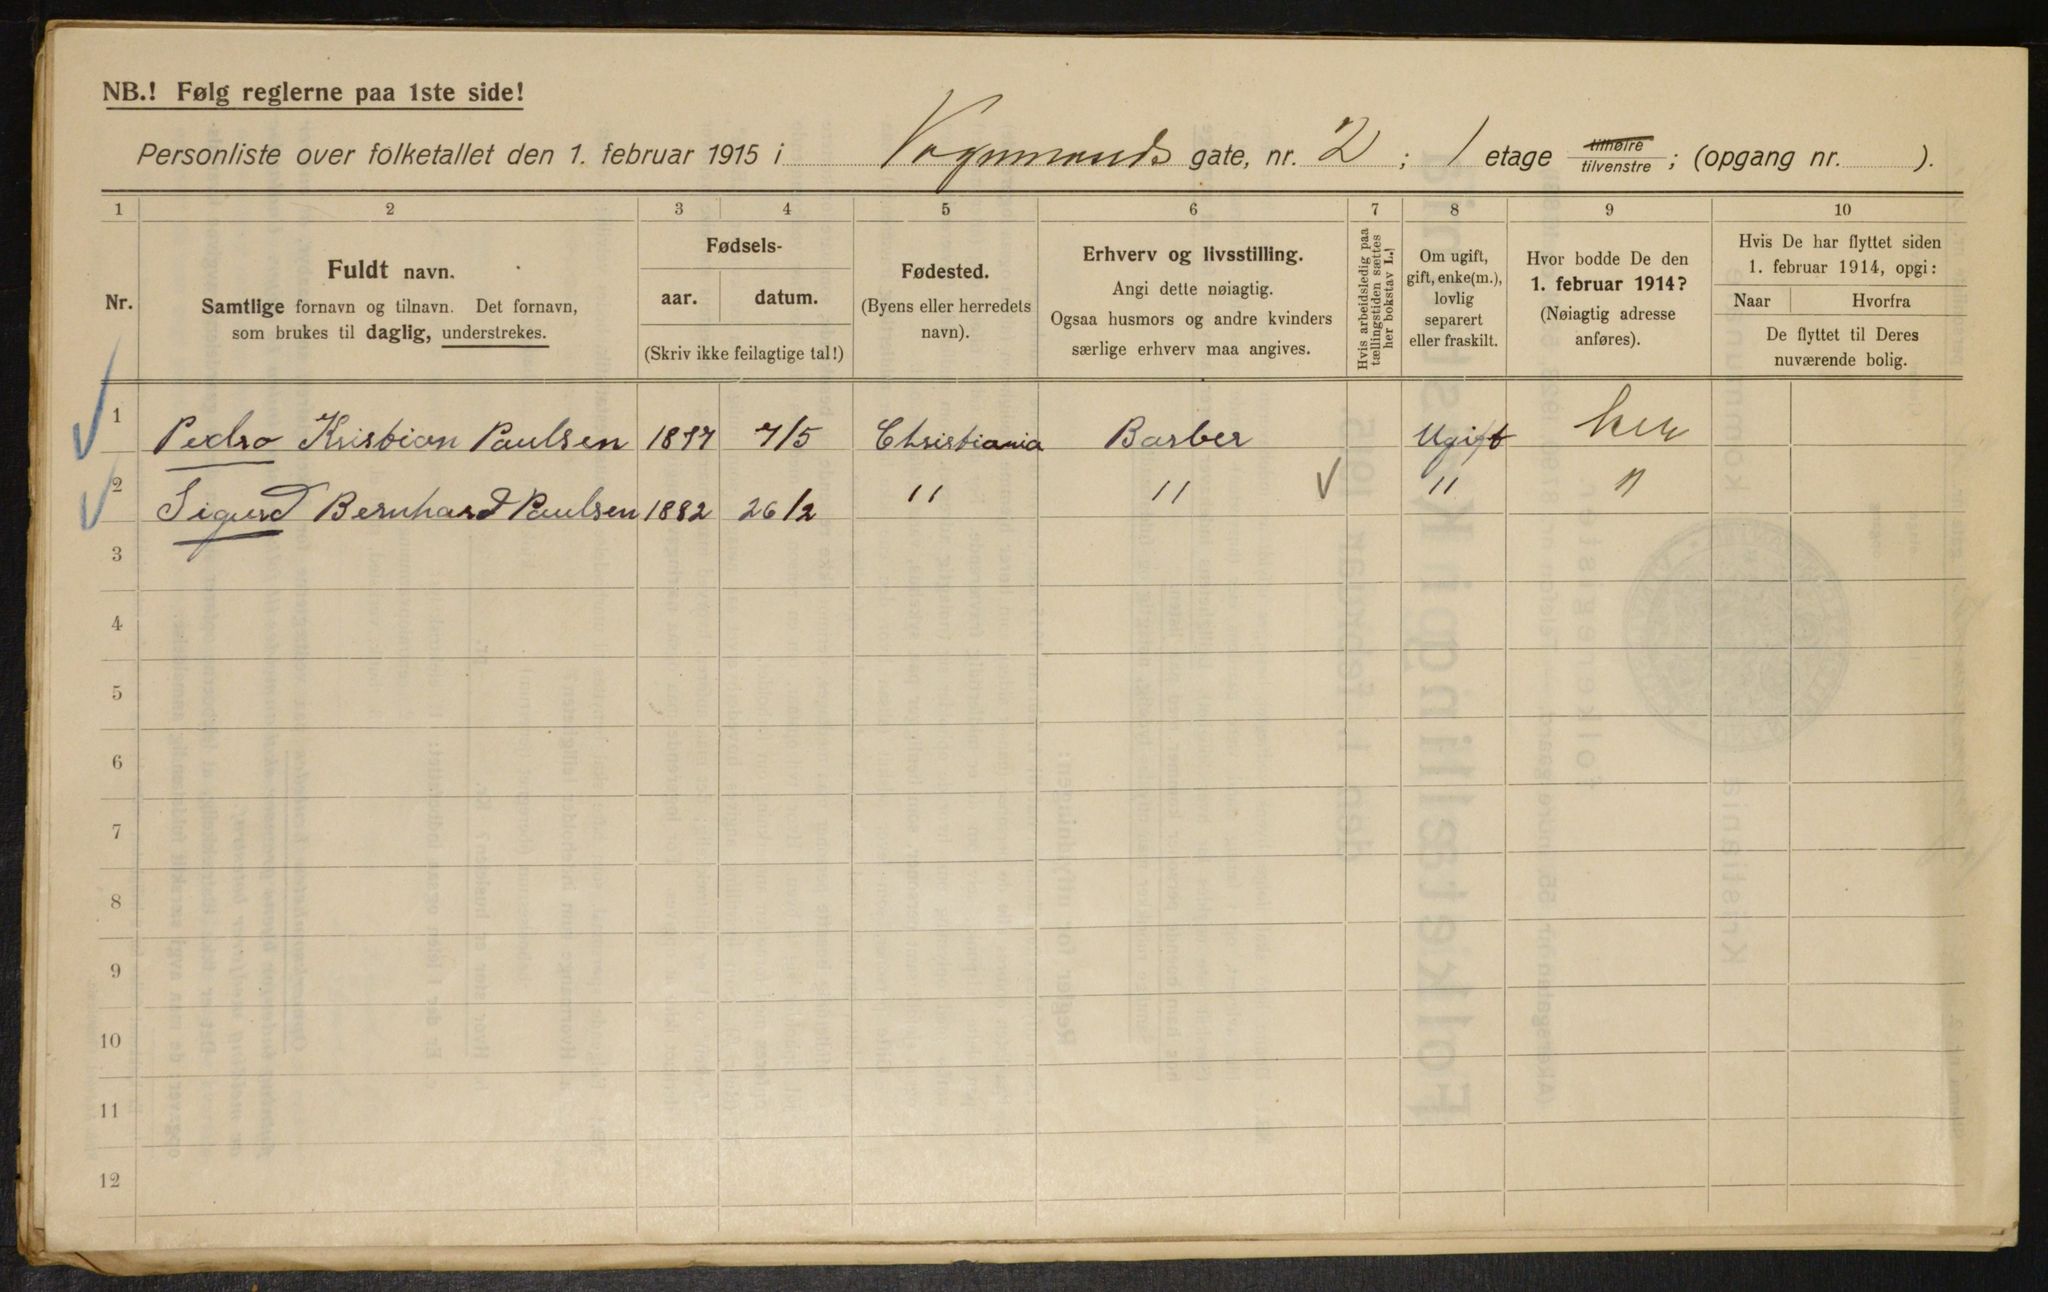 NB.! Følg reglerne paa 1ste side!
Personliste over folketallet den 1. februar 1915 i Vognmands gate, nr. 2 ; 1 etage tilhøire tilvenstre ; (opgang nr. ).
1 2 3 4 5 6 7 8 9 10
Nr.
Fuldt navn.
Samtlige fornavn og tilnavn. Det fornavn,
som brukes til daglig, understrekes.
Fødsels-
aar. datum.
(Skriv ikke feilagtige tal!)
Fødested.
(Byens eller herredets
navn).
Erhverv og livsstilling.
Angi dette nøiagtig.
Ogsaa husmors og andre kvinders
særlige erhverv maa angives.
Hvis arbeidsledig paa
tællingstiden sættes
her bokstav L.!
Om ugift,
gift, enke(m.),
lovlig
separert
eller fraskilt.
Hvor bodde De den
1. februar 1914?
(Nøiagtig adresse
anføres).
Hvis De har flyttet siden
1. februar 1914, opgi:
Naar Hvorfra
De flyttet til Deres
nuværende bolig.
1 Pedro Kristian Paulsen 1877 7/5 Christiania Barber Ugift her
2 Sigurd Bernhard Paulsen 1882 26/2 " " " "
3
4
5
6
7
8
9
10
11
12